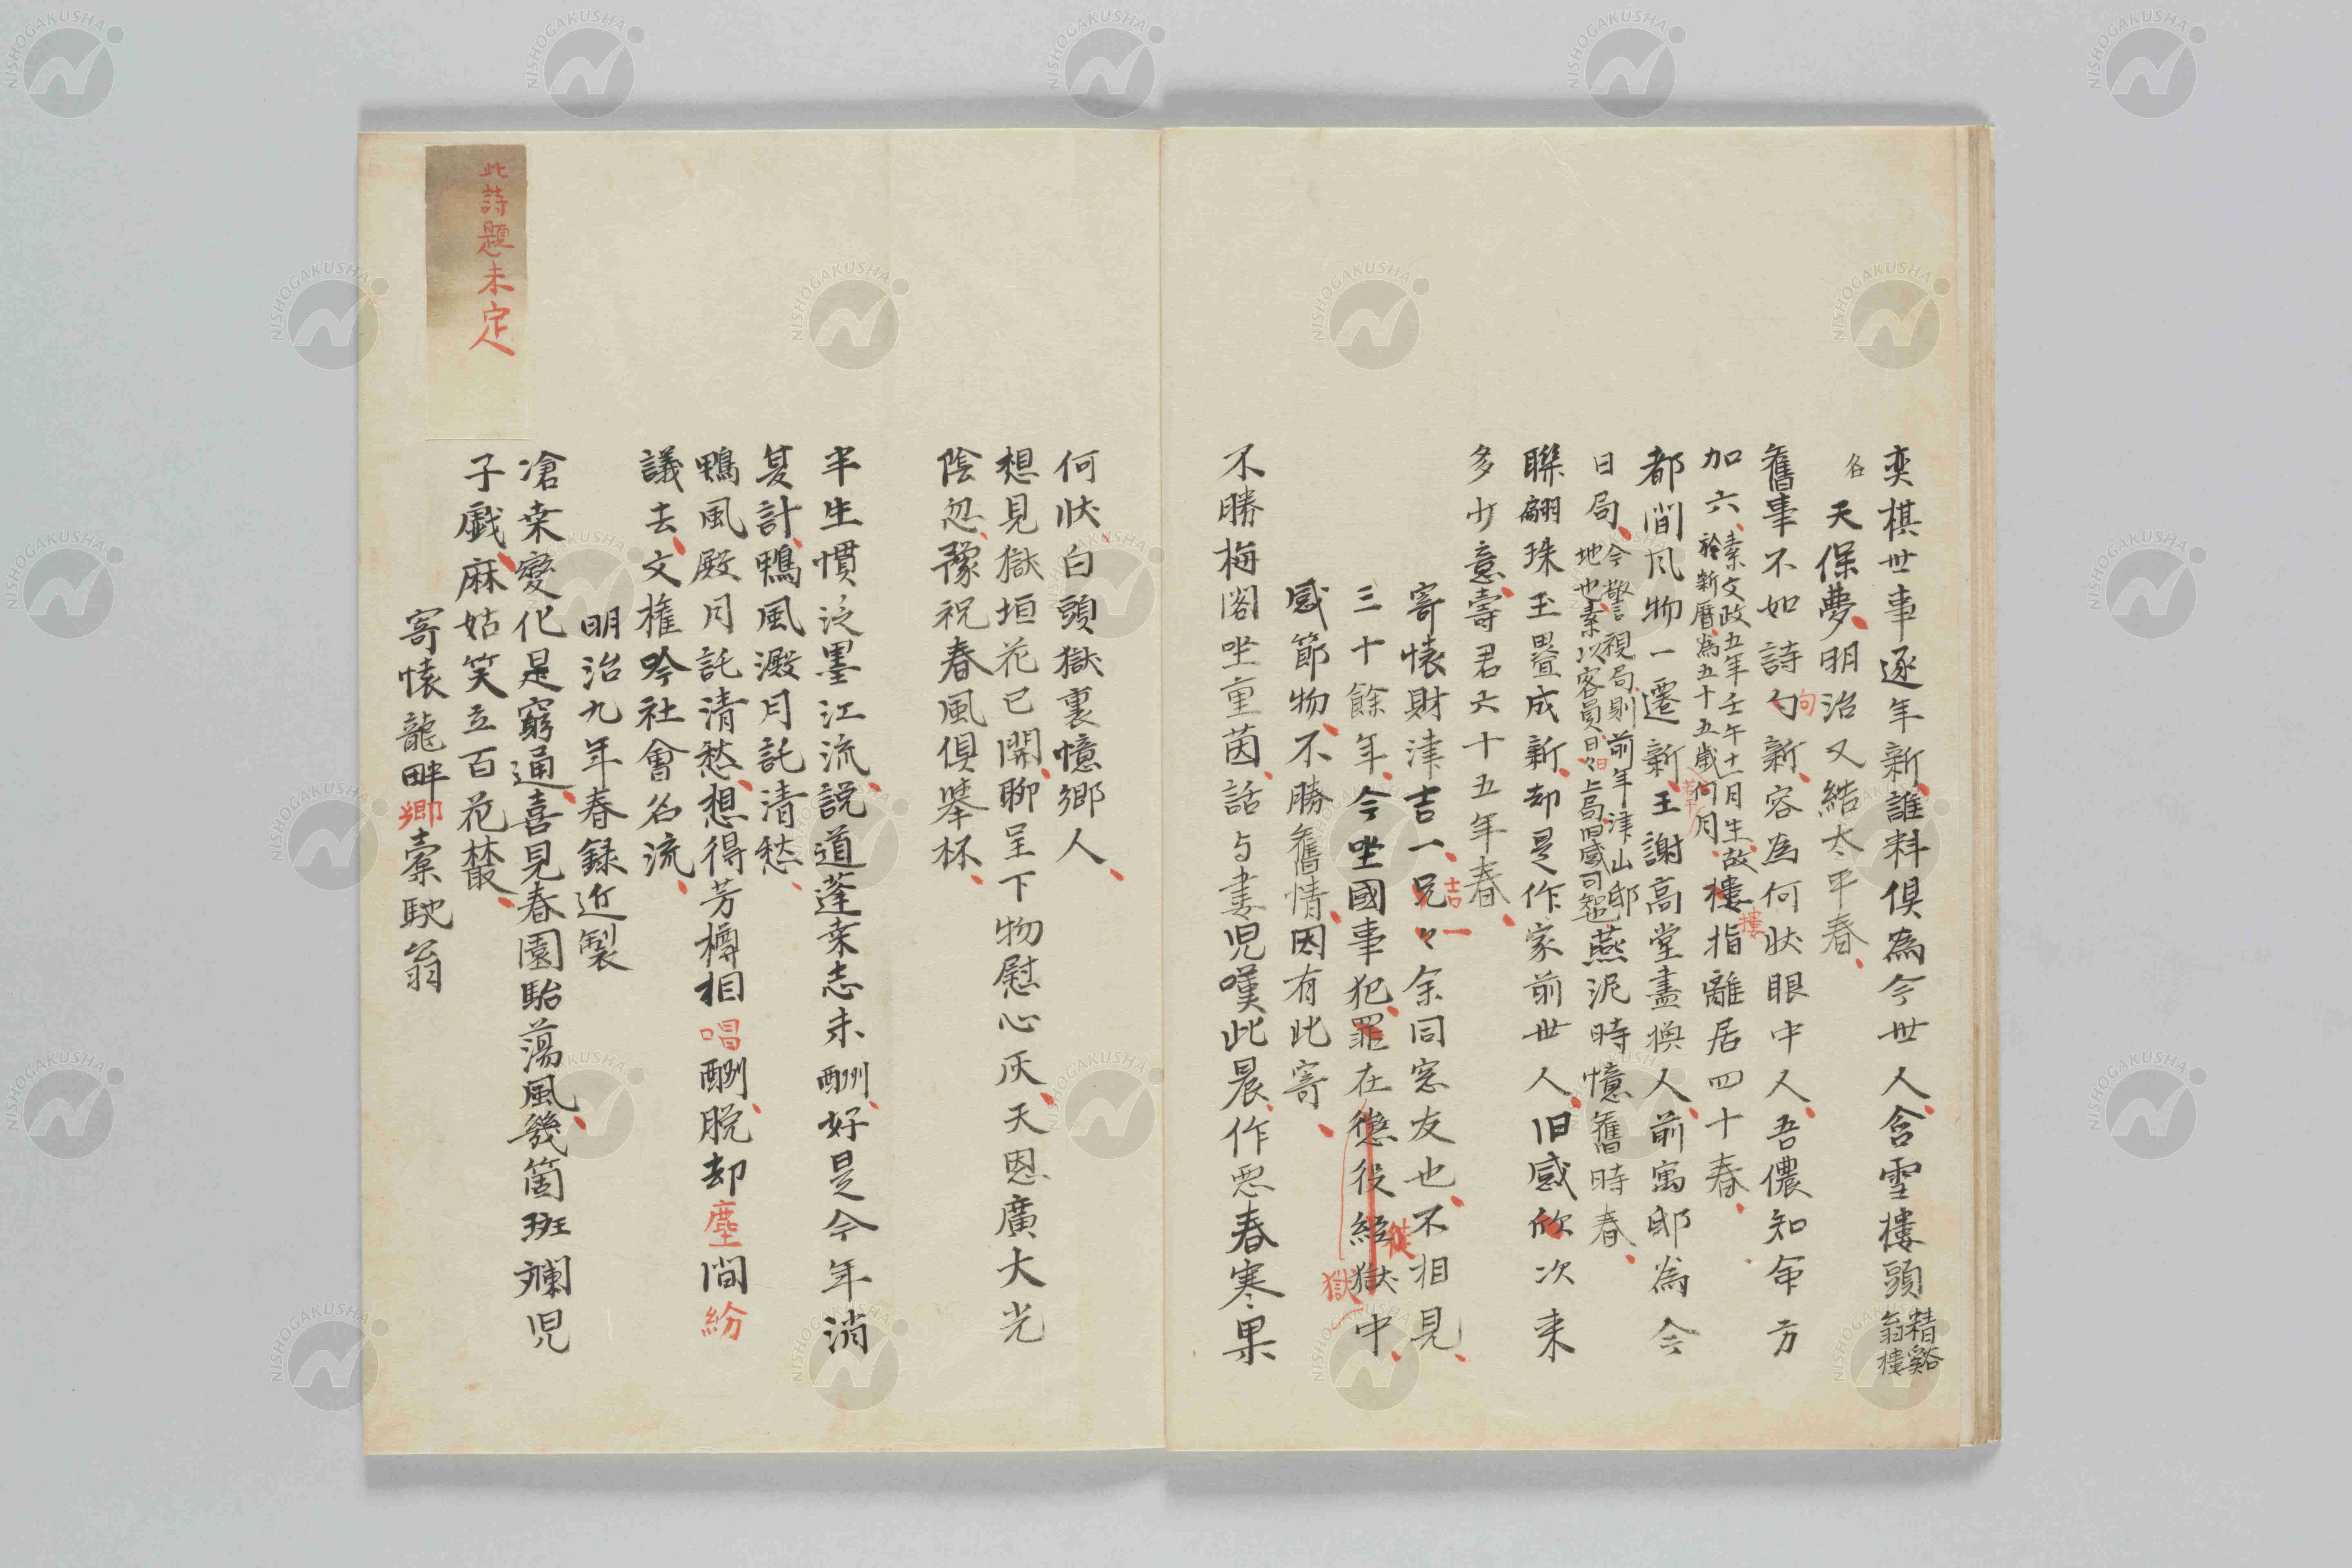 奕棋世事逐年新誰料俱為今世人含雪樓頭精谿翁樓
名天保夢明治又結太平春
舊事不如詩句新容為何狀眼中人吾儂知命方
句
加六素文政五年壬午十一月生故於新曆為五十五歲何月樓指離居四十春
若干
樓
都間風物一遷新王謝高堂盡換人前寓邸為今
日局今警視局則前年津山邸地也素以客員日々上局旧感可知也燕泥時憶舊時春
日
聯翩珠玉疊成新却是作家前世人旧感欣次来
多少意壽君六十五年春
寄懷財津吉一兄々余同窓友也不相見
吉一
三十餘年今坐國事犯罪在懲役経獄中
徒
獄
感節物不勝舊情因有此寄
不勝梅閣坐重茵話与妻児嘆此晨作悪春寒果
何狀白頭獄裏憶鄉人
想見獄垣花已開聊呈下物慰心灰天恩廣大光
陰忽豫祝春風俱挙杯
半生慣泛墨江流説道蓬桒志未酬好是今年消
夏計鴨風澱月託清愁
鴨風殿月託清愁想得芳樽相唱酬脱却塵間紛
議去文権吟社會名流
明治九年春録近製
此詩題未定
滄桒變化是窮通喜見春園駘蕩風幾箇斑斕児
子戯麻姑笑立百花叢
寄懷龍畔鄉槖駝翁